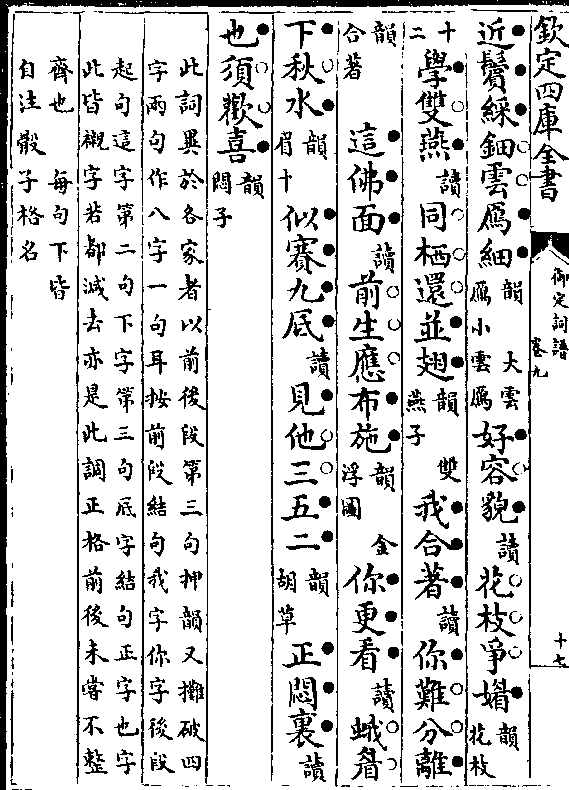 欽定四庫全書
御定詞譜
卷九
十七
近鬢綵鈿雲鴈細韻 大雲鴈小雲鴈 好容貌讀花枝爭媚韻 花枝
十二 學雙燕讀同栖還並翅韻 雙燕子 我合著讀你難分離
韻 合著 這佛面讀前生應布施韻 金浮圖 你更看讀蛾眉
下秋水韻 眉十 似賽九底讀見他三五二韻 胡草 正悶裏讀
也須歡喜韻 悶子
此詞異於各家者以前後段第三句押韻又攤破四
字兩句作八字一句耳按前段結句我字你字後段
起句這字第二句下字第三句底字結句正字也字
此皆襯字若都減去亦是此調正格前後未嘗不整
齊也 每句下皆
自注骰子格名